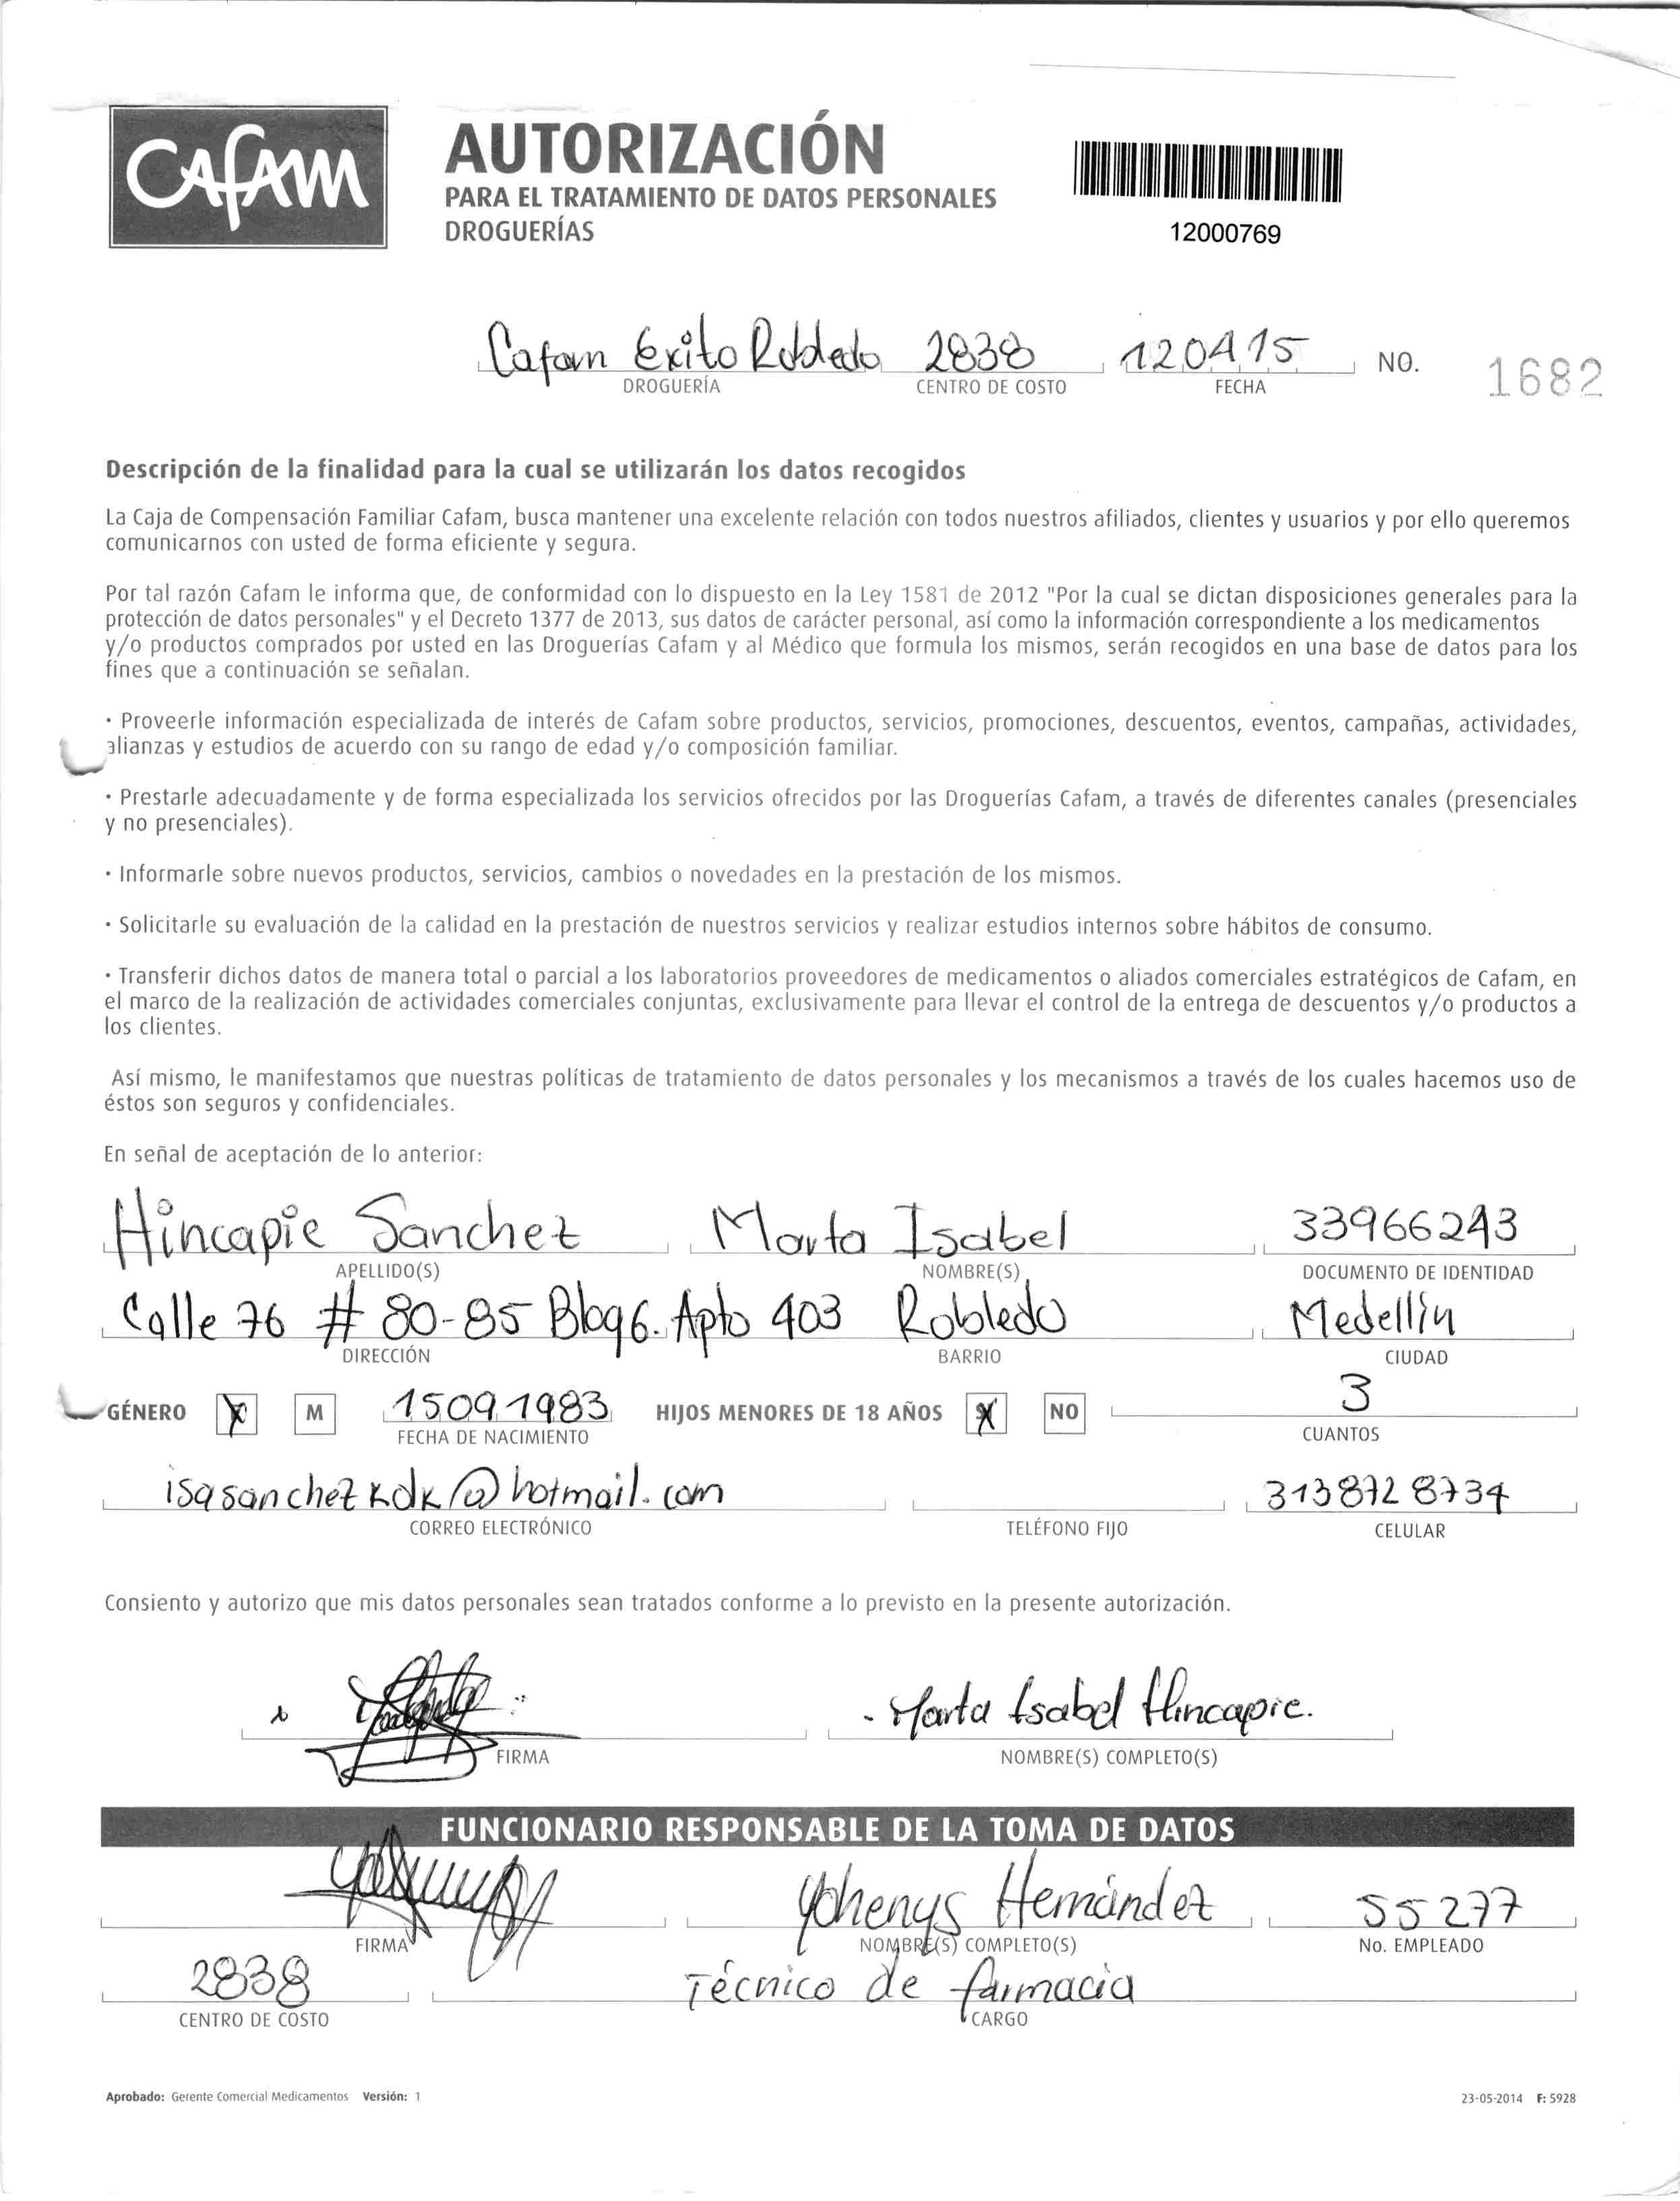 CAFAM
AUTORIZACIÓN
PARA EL TRATAMIENTO DE DATOS PERSONALES
DROGUERÍAS
12000769
Cafam Exito Robledo 2838 120415 NO. 1682
DROGUERÍA CENTRO DE COSTO FECHA
Descripción de la finalidad para la cual se utilizarán los datos recogidos
La Caja de Compensación Familiar Cafam, busca mantener una excelente relación con todos nuestros afiliados, clientes y usuarios y por ello queremos
comunicarnos con usted de forma eficiente y segura.
Por tal razón Cafam le informa que, de conformidad con lo dispuesto en la Ley 1581 de 2012 "Por la cual se dictan disposiciones generales para la
protección de datos personales" y el Decreto 1377 de 2013, sus datos de carácter personal, así como la información correspondiente a los medicamentos
y/o productos comprados por usted en las Droguerías Cafam y al Médico que formula los mismos, serán recogidos en una base de datos para los
fines que a continuación se señalan.
· Proveerle información especializada de interés de Cafam sobre productos, servicios, promociones, descuentos, eventos, campañas, actividades,
alianzas y estudios de acuerdo con su rango de edad y/o composición familiar.
· Prestarle adecuadamente y de forma especializada los servicios ofrecidos por las Droguerías Cafam, a través de diferentes canales (presenciales
y no presenciales).
· Informarle sobre nuevos productos, servicios, cambios o novedades en la prestación de los mismos.
· Solicitarle su evaluación de la calidad en la prestación de nuestros servicios y realizar estudios internos sobre hábitos de consumo.
· Transferir dichos datos de manera total o parcial a los laboratorios proveedores de medicamentos o aliados comerciales estratégicos de Cafam, en
el marco de la realización de actividades comerciales conjuntas, exclusivamente para llevar el control de la entrega de descuentos y/o productos a
los clientes.
Así mismo, le manifestamos que nuestras políticas de tratamiento de datos personales y los mecanismos a través de los cuales hacemos uso de
éstos son seguros y confidenciales.
En señal de aceptación de lo anterior:
Hincapie Sanchez Marta Isabel 33966243
APELLIDO(S) NOMBRE(S) DOCUMENTO DE IDENTIDAD
Calle 76 # 80-85 Bloq 6. Apto 403 Robledo Medellín
DIRECCIÓN BARRIO CIUDAD
GÉNERO X M 15091983 HIJOS MENORES DE 18 AÑOS X NO 3
FECHA DE NACIMIENTO CUANTOS
isasanchezkdk@hotmail.com 3138728734
CORREO ELECTRÓNICO TELÉFONO FIJO CELULAR
Consiento y autorizo que mis datos personales sean tratados conforme a lo previsto en la presente autorización.
Marta Isabel Hincapie.
FIRMA NOMBRE(S) COMPLETO(S)
FUNCIONARIO RESPONSABLE DE LA TOMA DE DATOS
Yohenys Hernández 55277
FIRMA NOMBRE(S) COMPLETO(S) No. EMPLEADO
2838 Técnico de farmacia
CENTRO DE COSTO CARGO
Aprobado: Gerente Comercial Medicamentos Versión: 1 23-05-2014 F: 5928